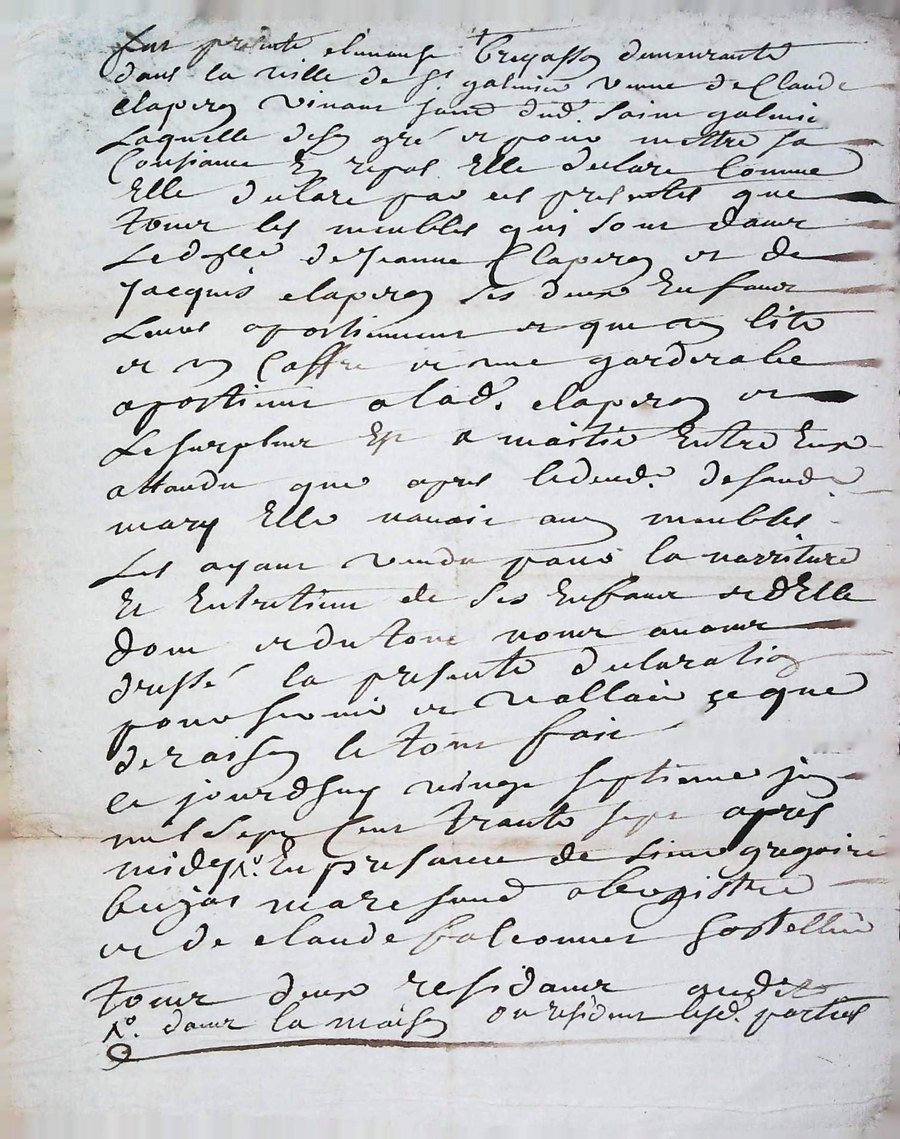 fut presente clemanse Bregasson demeurante
dans la ville de St galmier veuve de Claude
claperon vivant dud. Saint galmier
Laquelle de son gré et pour mettre sa
Consiance En repos Elle declare Comme
Elle declare par ces presentes que
tous les meubles qui sont dans
Le de Jeanne Claperon et de
Jacques claperon ses deux Enfans
Leurs apartiennent et que un lits
et un Coffre et une garderobe
apartient a lad. claperon et
Le surplus Est a moitié Entre Eux
attandu que apres le deud. defund
mary Elle navoit aucun meubles
Les ayant vendu pour la norriture
Et Entretien de ses Enfans et dElle
dont et du tout nous avons
dressé la presente declaration
pour servir et valloir çe que
de raison le tout fait
ce jourdhuy vingt septieme juin
mil Sept Cent trante sept apres
midy 1o. En presance de Sieur gregoire
bujas marchand
et de claude falconnet hostellier
tous deux residants aud.
1o. dans la maison ou resident lesd. parties